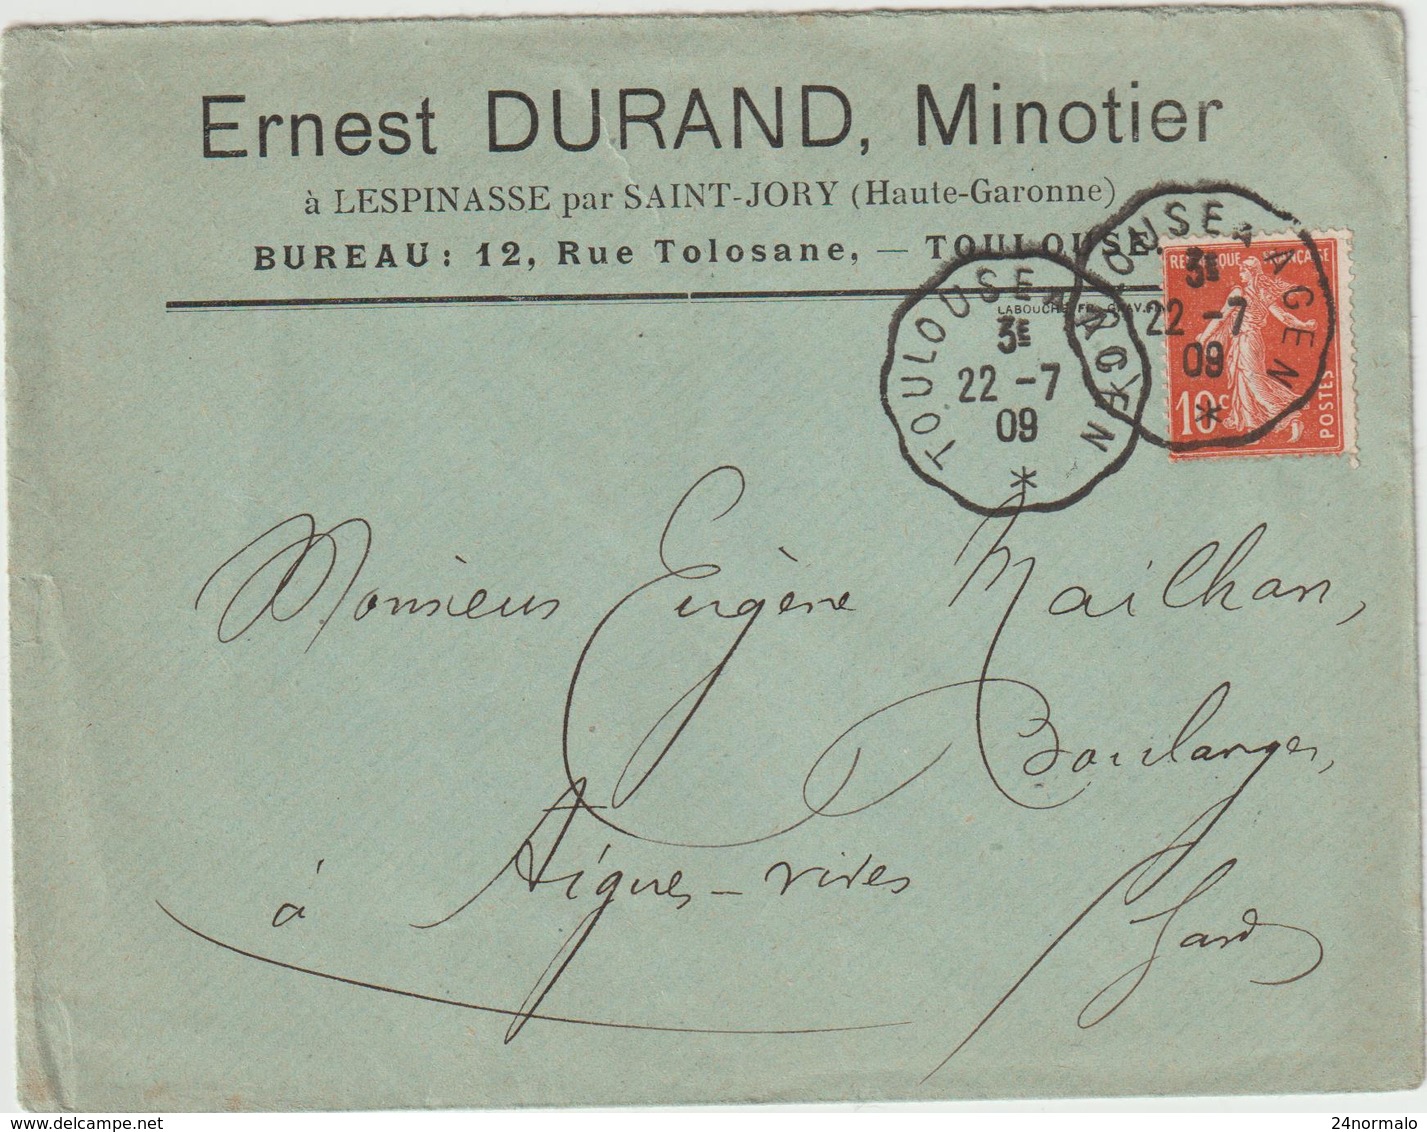 Ernest DURAND, Minotier
à LESPINASSE par SAINT-JORY (Haute-Garonne)
BUREAU : 12, Rue Tolosane, — TOULOUSE
TOULOUSE A AGEN
3E
22 -7
09
*
TOULOUSE A AGEN
3E
22 -7
09
*
REPUBLIQUE FRANÇAISE
10c
POSTES
Monsieur Eugène Mailhan,
Boulanger,
à Aigues-vives
Gard
www.delcampe.net
24normalo